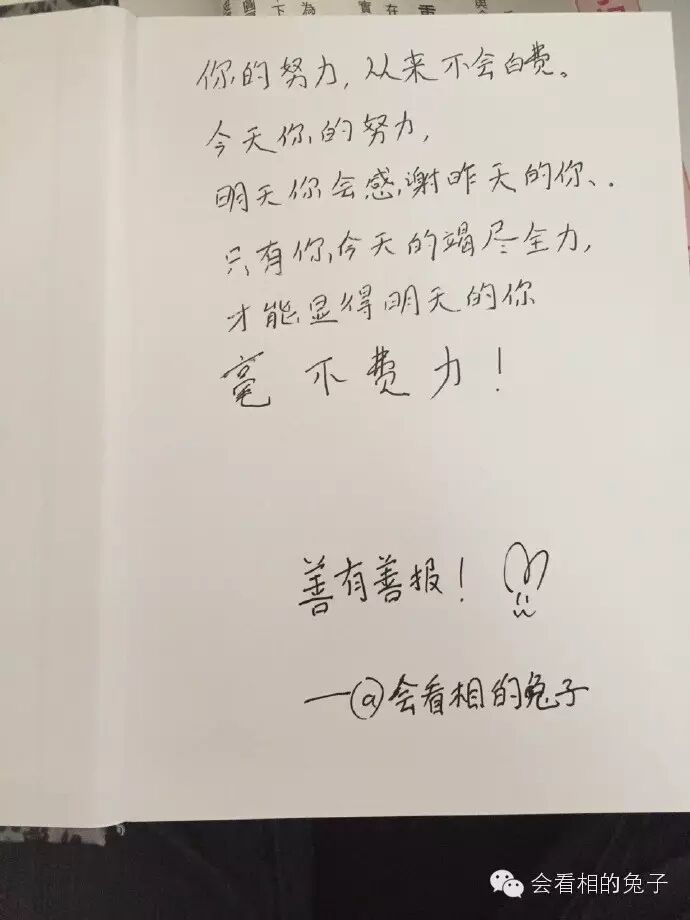 你的努力,从来不会白费。
今天你的努力,
明天你会感谢昨天的你、.
只有你今天的竭尽全力,
才能显得明天的你
毫不费力!
善有善报!
—@会看相的兔子
会看相的兔子